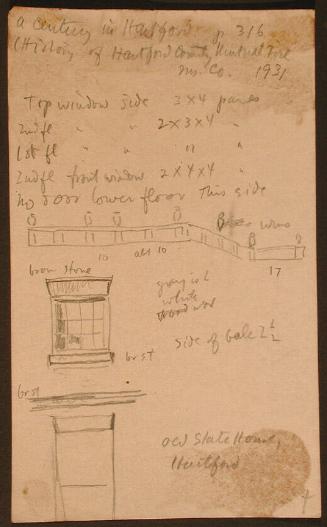 A century in Hartford p 316
(History of Hartford County Mutual Fire
Ins. Co. 1931
Top window side 3 x 4 panes
2nd fl " " 2 x 3 x 4 "
1st fl " " " "
2nd fl front window 2 x 4 x 4 "
no door lower floor this side
10 abt 10
17
brown stone
grayish
white
wood
br st
side of bale 2 1/2
br st
Old State House,
Hartford